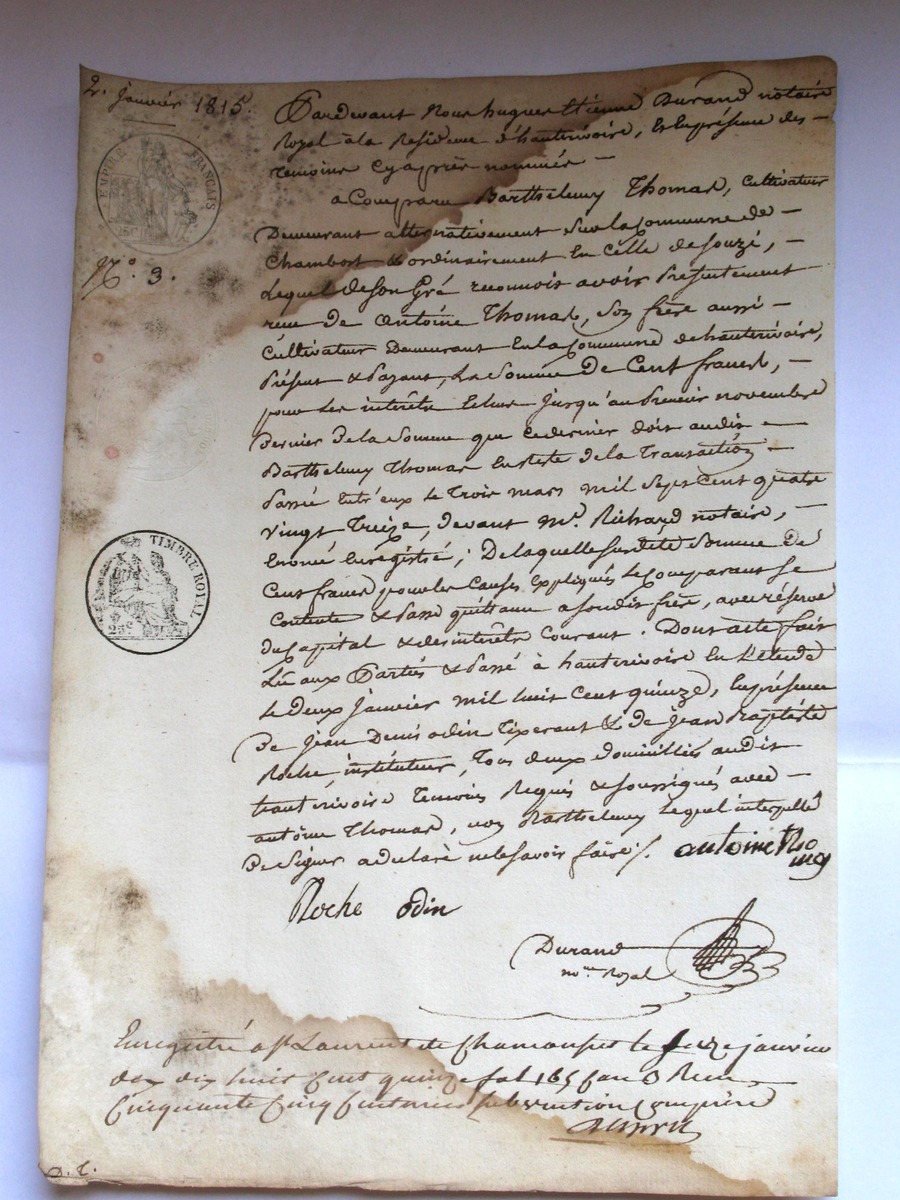 2. janvier 1815.
EMPIRE FRANÇAIS
Nº. 3.
TIMBRE ROYAL
25c
Pardevant Nous hugues Etienne Durand notaire
Royal à la Residence d'hauterivoire, & En présence des
temoins Cyaprès nommés
a Comparu Barthelemy Thomas, Cultivateur
Demeurant alternativement Sur la Commune de
Chambost & ordinairement En Celle de Souzé,
Lequel de Son Gré reconnois avoir Présentement
recu de antoine Thomas, Son frère aussi
Cultivateur Demeurant En la Commune de hauterivoire,
Présent & Payant, La Somme de Cent francs,
pour Les interêts Echus jusqu'au Premier novembre
Dernier de la Somme que ce dernier doit audit
Barthelemy Thomas En reste de la Transaction
Passé Entr'eux le Trois mars mil Sept Cent quatre
vingt Treize, devant Me. Richard notaire,
Enregistré ; De laquelle Susdite Somme de
Cent francs pour les Causes Expliqués le Comparant Se
Contente & Passe quittance a Soudit frère, avec réserve
du Capital & des interêts Courant. Dont acte fait
Lû aux Partiés & Passé à hauterivoire En L'étude
le deux janvier mil huit Cent quinze, En présence
De jean Denis odin Tixerant & de jean Baptiste
Roche, instituteur, Tous deux domiciliés audit
hauterivoire Temoins Requis & Soussignés avec
antoine Thomas, non Barthelemy Lequel interpellé
De Signer a declaré ne le Savoir faire /. antoine Thomas
Roche odin
Durand
nore Royal
Enregistré a St Laurent de Chamousset le janvier
dix huit Cent quinze fol 165 Reçu
Cinquante Cinq Centimes Subvention Comprise
D. t.